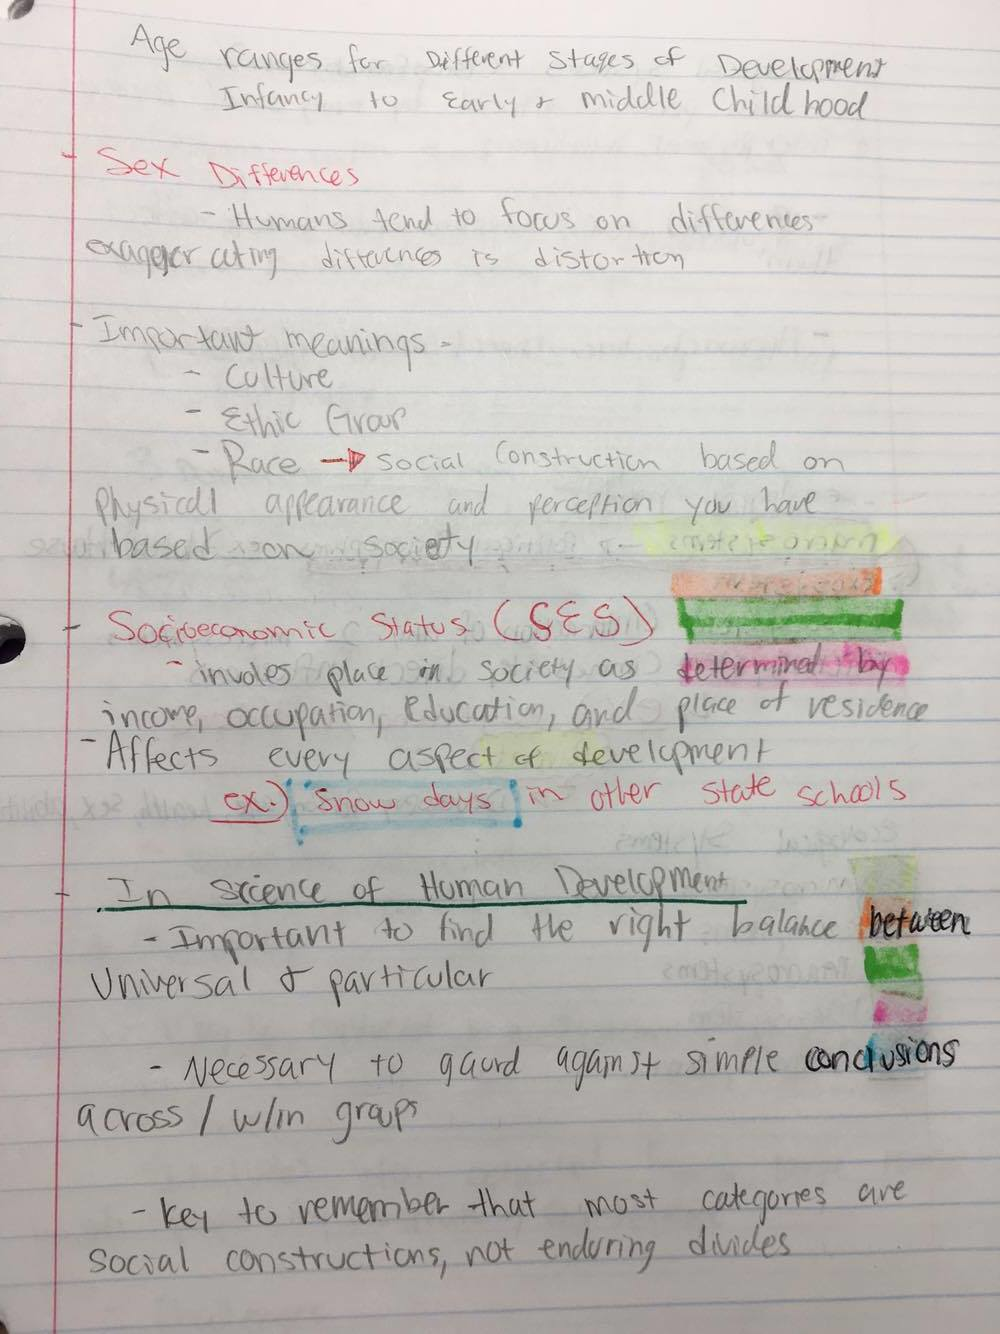 Age ranges for Different Stages of Development
Infancy to Early & middle Childhood
- Sex Differences
- Humans tend to focus on differences
exaggerating differences is distortion
- Important meanings -
- Culture
- Ethic Group
- Race → social construction based on
physical appearance and perception you have
based on society
- Socioeconomic Status (SES)
- involes place in society as determined by
income, occupation, education, and place of residence
- Affects every aspect of development
ex.) Snow days in other state schools
- In science of Human Development
- Important to find the right balance between
Universal & particular
- Necessary to gaurd against simple conclusions
across / w/in groups
- Key to remember that most categories are
social constructions, not enduring divides